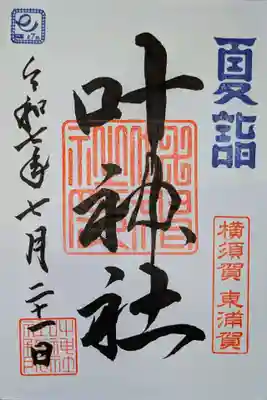 夏詣
横須賀 東浦賀
叶神社
令和七年七月二十一日